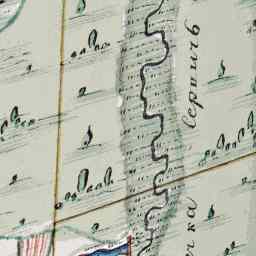 чка Серпичь